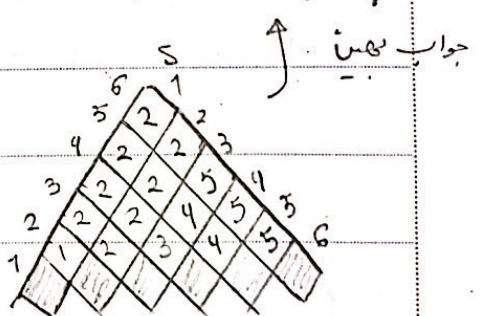 جواب بهینه
S
6 1
5 2 2
4 2 2 3
3 2 2 5 4
2 2 2 4 5 5
1 1 2 3 4 5 6